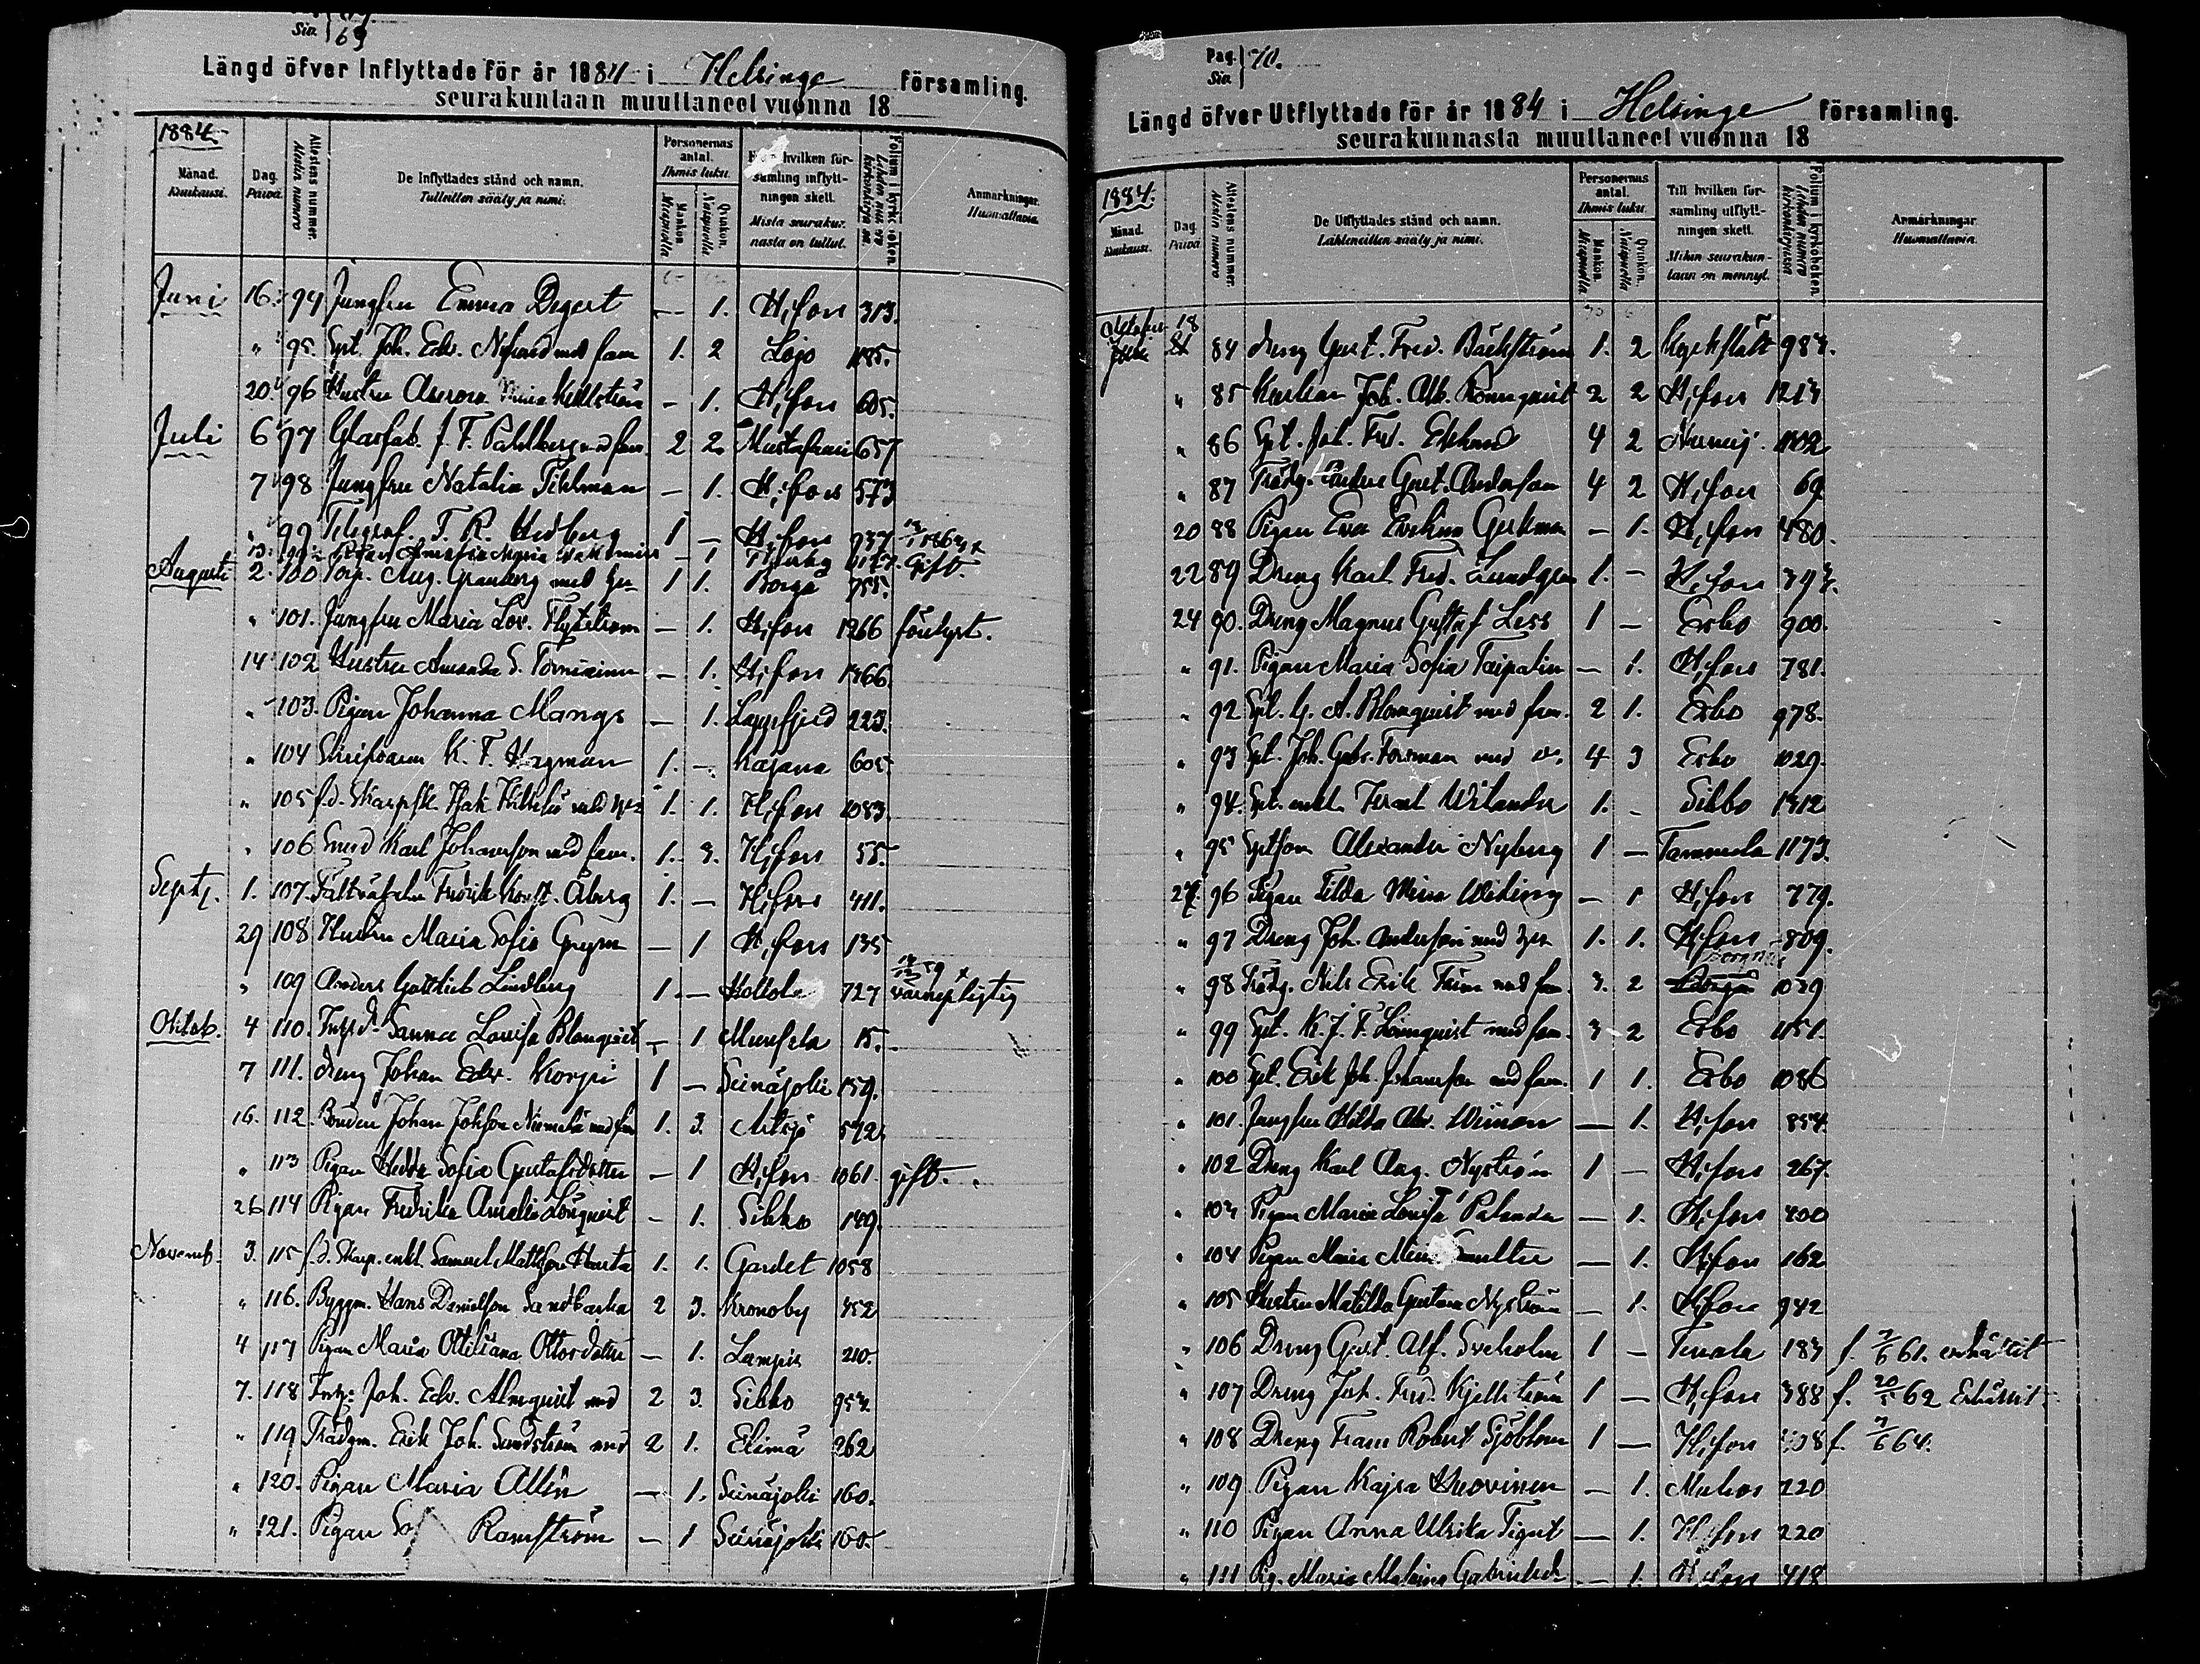 Sia. 69
Längd öfver Inflyttade för år 1884 i Helsinge församling.
seurakuntaan muuttaneet vuonna 18
1884.
Månad. Kuukausi.
Dag. Päivä.
Attestens nummer. Attestin numero
De Inflyttades stånd och namn. Tulleitten sääty ja nimi.
Personernas antal. Ihmis luku.
Mankön. Miespuolta
Qvinkön. Naispuolta
hvilken församling inflyttningen skett. Mista seurakunnasta on tullut.
Folium i kyrkoboken.
Anmärkningar. Huomattavia.
Juni 16. 94 Jungfru Emma Degert — 1. H,fors 313.
" 95. Spt. Joh. Edv. med fam 1. 2 Lojo 1185.
20. 96 Hustru Aurora Mina Kellström — 1. H,fors 605.
Juli 6 97 Glasfab. J. F. Pahlberg med fam. 2 2. Mustasaari 657
7 98 Jungfru Natalia Tihlman — 1. H,fors 573
" 99 Telegraf. T. R. Hedberg 1 — H,fors 937
Pigan Amalia Maria — 1 1177. Gift.
Augusti 2. 100 Torp. Aug. Granberg med hu 1 1. Borgå 755.
" 101. Jungfru Maria Lov. Flytström — 1. H,fors 1266 förlyst.
14 102 Hustru Amanda S. Torniainen — 1. H,fors 1366.
" 103. Pigan Johanna Mangs — 1. Lappfjerd 223.
" 104 K. F. Hagman 1. — Kajana 605.
" 105 f.d. 1. 1. H,fors 1083.
" 106 Smed Karl Johansson med fam. 1. 3. H,fors 55.
Septbr. 1. 107. Fältväbeln Fredrik Konst. Åberg 1. — H,fors 411.
29 108 Hustru Maria Sofia — 1 H,fors 135
" 109 Anders Gottlieb Lindberg 1. — Hollola 727 värnepligtig
Oktob. 4 110. Sanna Lovisa Blomqvist — 1 Munsala 15.
7 111. dreng Johan Edv. Korpi 1 — Seinäjoki 159.
16. 112. Bonden Johan Johsson Niemelä med fam 1. 3. Artsjö 572.
" 113 Pigan Hedda Sofia Gustafsdotter — 1 H,fors 1061. gift.
26 114 Pigan Fredrika Amalia Lönqvist — 1. Sibbo 149.
Novemb. 3. 115 f.d. Skarp. enkl. Samuel Mattsson Harta 1. 1. Gardet 1058
" 116. Byggm. Hans Danielson Sandbacka 2 3. Kronoby 452
4 117 Pigan Maria Ottiliana Ottosdotter — 1. Lampis 210.
7. 118 Joh. Edv. Almqvist med 2 3. Sibbo 953
" 119 Trädgm. Erik Joh. Sundström med 2 1. Elimä 262
" 120. Pigan Maria Allén — 1. Seinäjoki 160.
" 121. Pigan Ramström — 1 Seinäjoki 160.
Pag. Sia. 70.
Längd öfver Utflyttade för år 1884 i Helsinge församling.
seurakunnasta muuttaneet vuonna 18
1884.
Månad. Kuukausi.
Dag. Päivä.
Attestens nummer. Attestin numero
De Utflyttades stånd och namn. Lähteneitten sääty ja nimi.
Personernas antal. Ihmis luku.
Mankön. Miespuolta
Qvinkön. Naispuolta
Till hvilken församling utflyttningen skett. Mihin seurakuntaan on mennyt.
Folium i kyrkoboken.
Anmärkningar. Huomattavia.
Oktober 18 84 dreng Gust. Fred. Bäckström 1. 2 Kyrkslätt 983.
" 85 Karlsson Joh. Alb. Rönnqvist 2 2 H,fors 1213
" 86 Spt. Joh. Fred. Eklund 4 2 Nurmij. 1102
" 87 Trädg. Anders Gust. Andersson 4 2 H,fors 69
20 88 Pigan Eva Evelina Gerkman — 1. H,fors 480.
22 89 Dreng Karl Fred. Lundgren 1. — H,fors 393.
24 90. Dreng Magnus Gustaf Less 1 — Esbo 900.
" 91. Pigan Maria Sofia Taipalin — 1. H,fors 781.
" 92 Spt. G. A. Blomqvist med fam. 2 1. Esbo 978.
" 93 Spt. Joh. Gabr. Forsman med 4 3 Esbo 1029.
" 94. Spt. enkl. Wilander 1. - Sibbo 1312
" 95 Sptson Alexander Nyberg 1 — Tammela 1173.
27. 96 Pigan Tilda Mina Widing — 1 H,fors 779.
" 97 Dreng Joh. Andersson med hu 1. 1. H,fors 809.
" 98 Trädg. Nils Erik med fam. 3. 2 1029
" 99 Spt. K. J. F. Lönnqvist med fam. 3 2 Esbo 1151.
" 100 Spt. Erik Joh. Johansson med fam. 1 1. Esbo 1086
" 101. Jungfru Hilda Alex. Wiman — 1. H,fors 854.
" 102 Dreng Karl Aug. Nyström 1 — H,fors 267.
" 103 Pigan Maria Lovisa Palander — 1. H,fors 400
" 104 Pigan Maria Mina — 1. H,fors 162
" 105 Hustru Matilda Gustava Nyström — 1. H,fors 942
" 106 Dreng Gust. Alf. Sveholm 1 — Tenala 183 f. 7/6 61. erhållit
" 107 Dreng Joh. Fred. Kjellström 1 — H,fors 388 f. 62 Erhållit
" 108 Dreng Frans Robert Sjöblom 1 — H,fors f. 7/6 64.
" 109 Pigan Kajsa Huovinen — 1. Muhos 220
" 110 Pigan Anna Ulrika Tigert — 1. H,fors 220
" 111 Pig. Maria Malvina — 1. H,fors 418